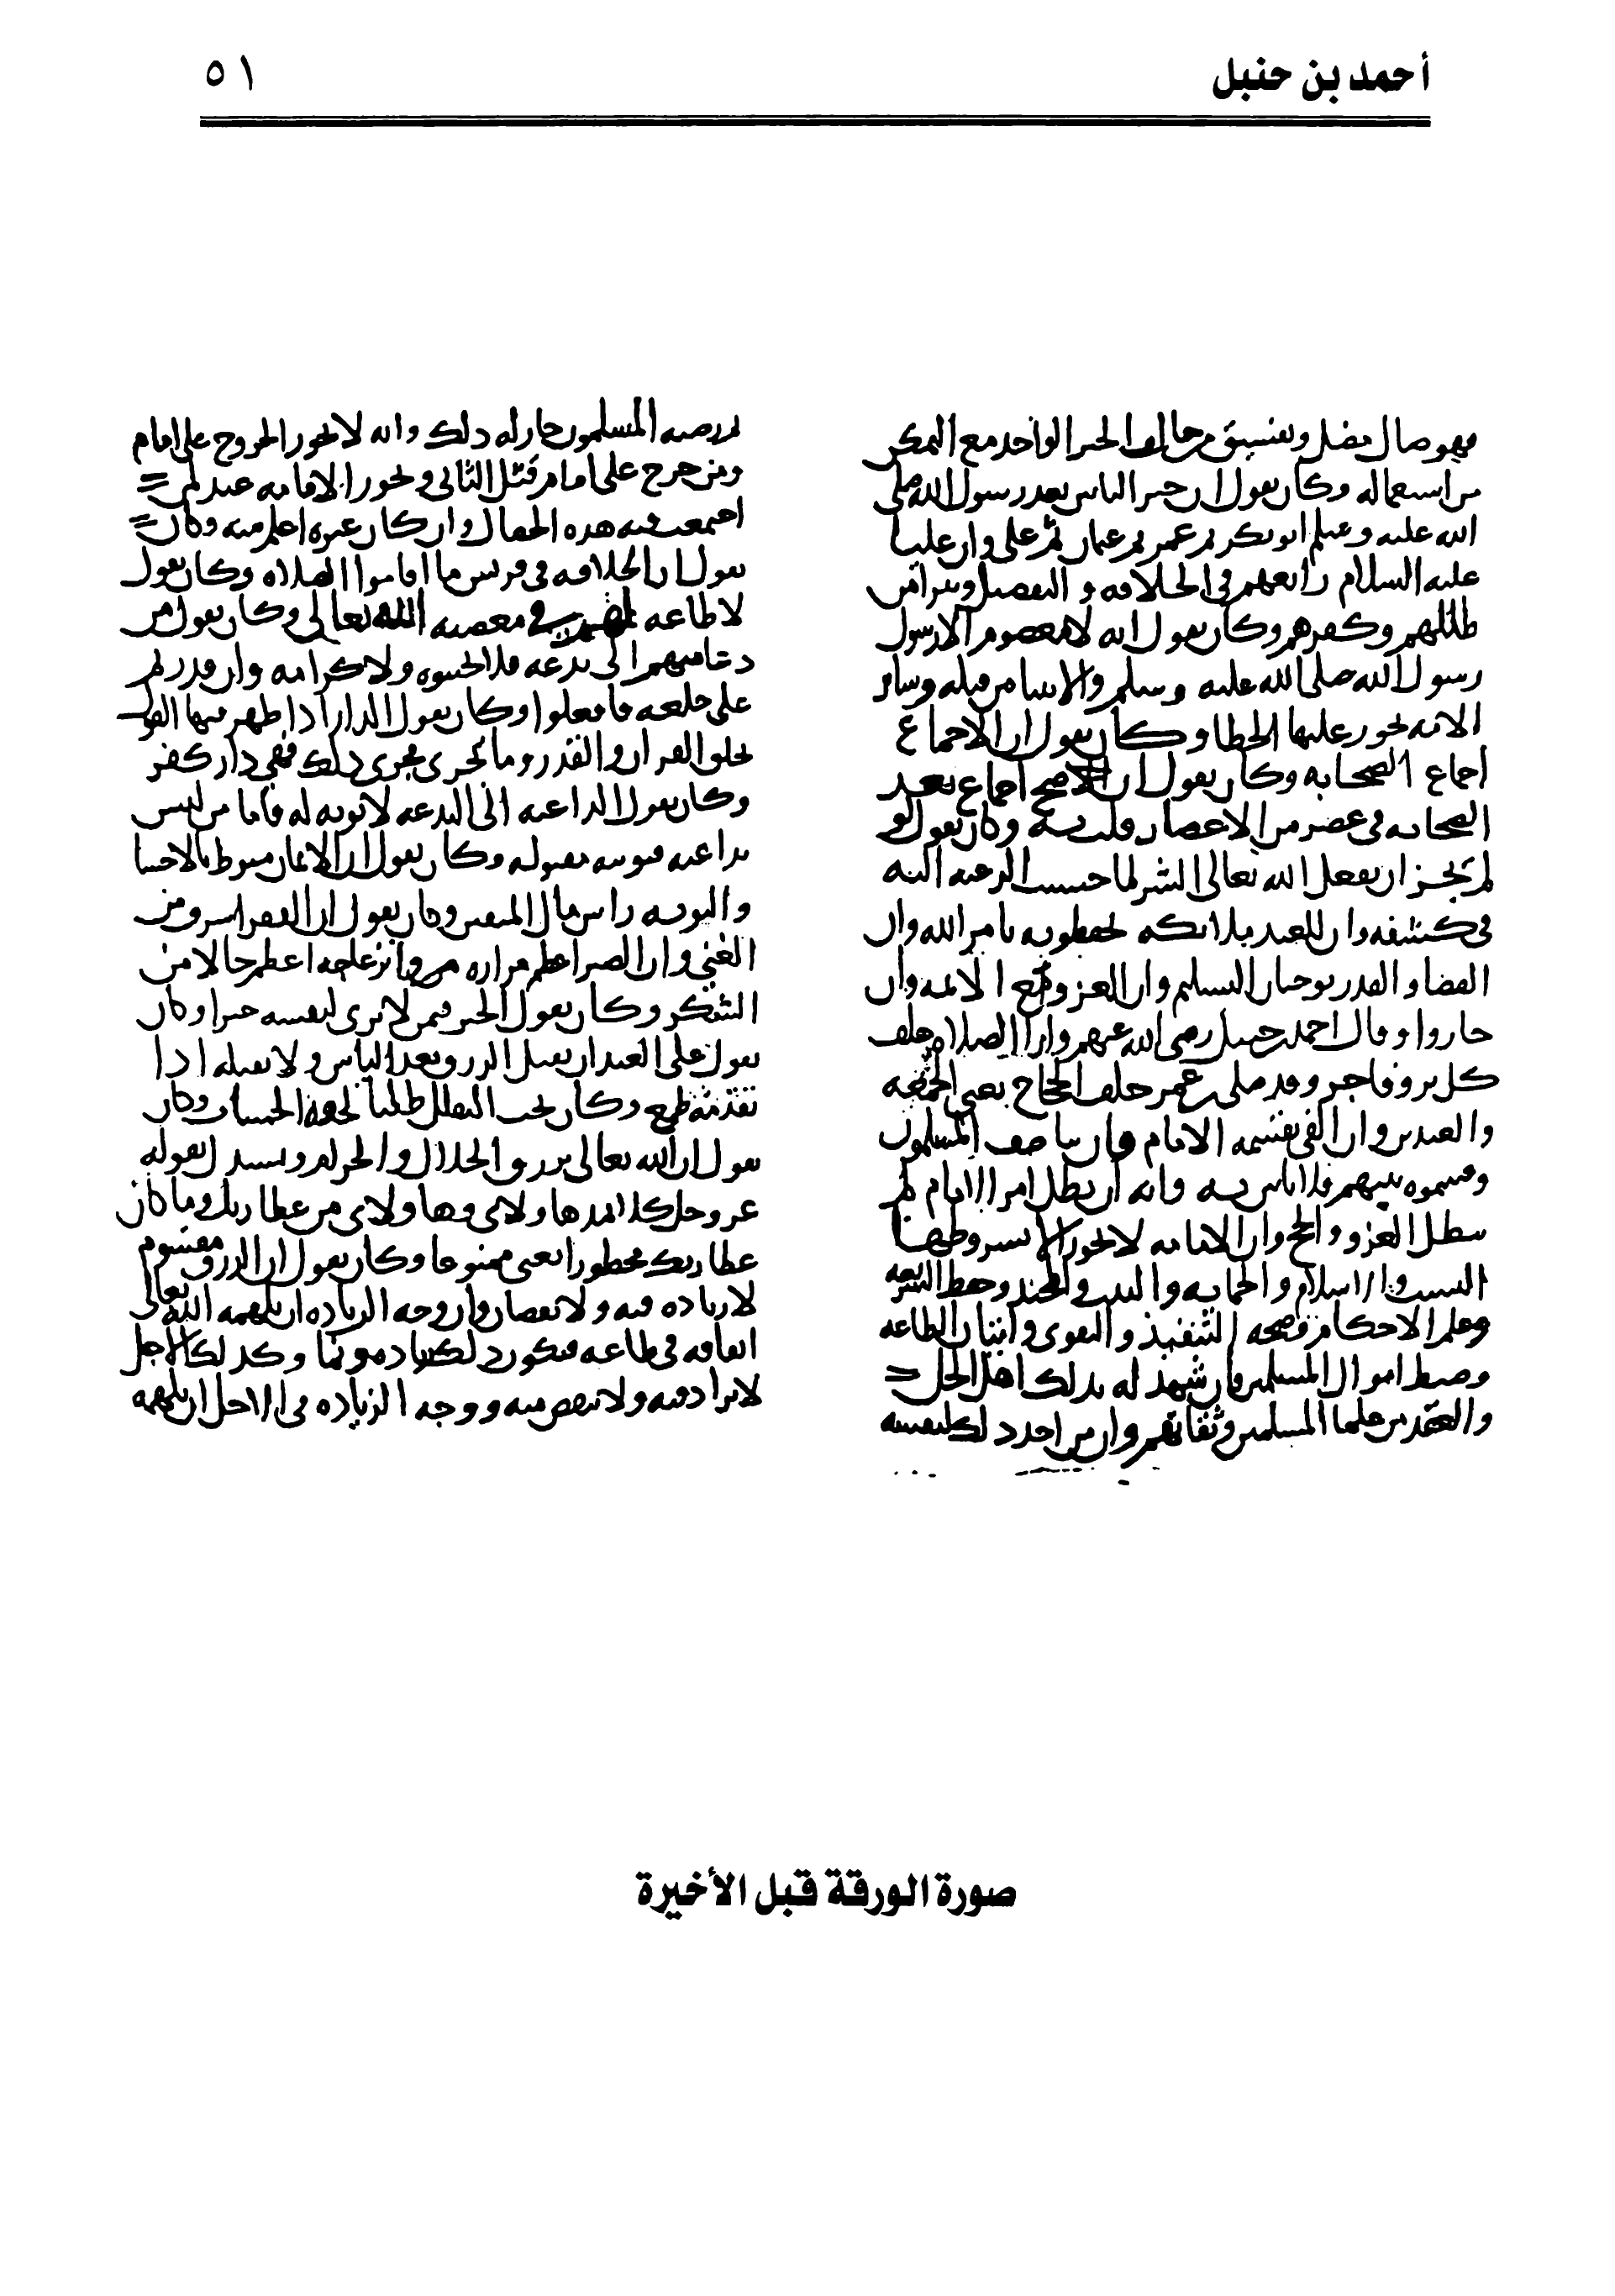 أحمد بن حنبل
٥١
فهو ضال مضل ويفسق من خالف الخبر الواحد مع التمكن
من استعماله وكان يقول ان خير الناس بعد رسول الله صلى
الله عليه وسلم ابو بكر ثم عمر ثم عثمان ثم علي وان عليا
عليه السلام رابعهم في الخلافه والتفضيل ويتبرا ممن
ظللهم وكفرهم وكان يقول انه لا معصوم الا رسول
رسول الله صلى الله عليه وسلم والانبيا من قبله وسائر
الامه يجوز عليها الخطا وكان يقول ان الاجماع
اجماع الصحابه وكان يقول ان صح اجماع بعد
الصحابه في عصر من الاعصار قلت به وكان يقول لو
لم يجز ان يفعل الله تعالى الشر لما حسنت الرغبه اليه
في كشفه وان للعبد ملائكه يحفظونه بامر الله وان
القضا والقدر يوجبان التسليم وان الغزو مع الائمه وان
جاروا وقال احمد بن حنبل رضي الله عنهم وارا الصلاه خلف
كل بر وفاجر وقد صلى بن عمر خلف الحجاج يعني الجمعه
والعيدين وان الفي يقسمه الامام وان تناصف المسلمون
وقسموه بينهم فلا باس به وانه ان بطل امر الامام لم
يبطل الغزو والحج وان الامامه لا تجوز الا بشروطها
النسب والاسلام والحمايه والبيت والمحتد وحفظ الشريعه
وعلم الاحكام وصحه التنفيذ والتقوى واتيان الطاعه
وضبط اموال المسلمين وان شهد له بذلك اهل الحل
والعقد من علما المسلمين وثقاتهم وان من اخذ ذلك لنفسه
ثم رضيه المسلمون جاز له ذلك وانه لا يجوز الخروج على امام
ومن خرج على امام قتل الثاني وتجوز الامامه عند لمن
اجتمعت فيه هذه الخصال وان كان غيره اعلم منه وكان
يقول ان الخلافه في قريش ما اقاموا الصلاه وكان يقول
لا طاعه لهم في معصيه الله تعالى وكان يقول من
دعا منهم الى بدعه فلا تجيبوه ولا كرامه وان قدرتم
على خلعه فافعلوا وكان يقول الدار اذا ظهر فيها القول
بخلق القران والقدر وما يجري مجرى ذلك فهي دار كفر
وكان يقول الداعيه الى البدعه لا توبه له فاما من ليس
بداعيه فتوبته مقبوله وكان يقول ان الايمان منوط بالاحسا
والتوبه راس مال المتقين وكان يقول ان الفقر اشرف من
الغنى وان الصبر اعظم مراره وانزعاجه اعظم حالا من
الشكر وكان يقول لا خير فيمن لا يرى لنفسه خيرا وكان
يقول على العبد ان يقبل الرزق بعد الياس ولا يقبله اذا
تقدمه طمع وكان يحب التقلل طلبا لخفه الحساب وكان
يقول ان الله تعالى يرزق الحلال والحرام ويستدل بقوله
عز وجل كلا نمد هاولاء وهاولاء من عطا ربك وما كان
عطا ربك محظورا يعني ممنوعا وكان يقول ان الرزق مقسوم
لا زياده فيه ولا نقصان وان وجه الزياده ان يلهمه الله تعالى
انفاقه في طاعه فيكون ذلك زياده ونما وكذلك الاجل
لا يزاد فيه ولا ينقص منه ووجه الزياده في الاجل ان يلهمه
صورة الورقة قبل الأخيرة